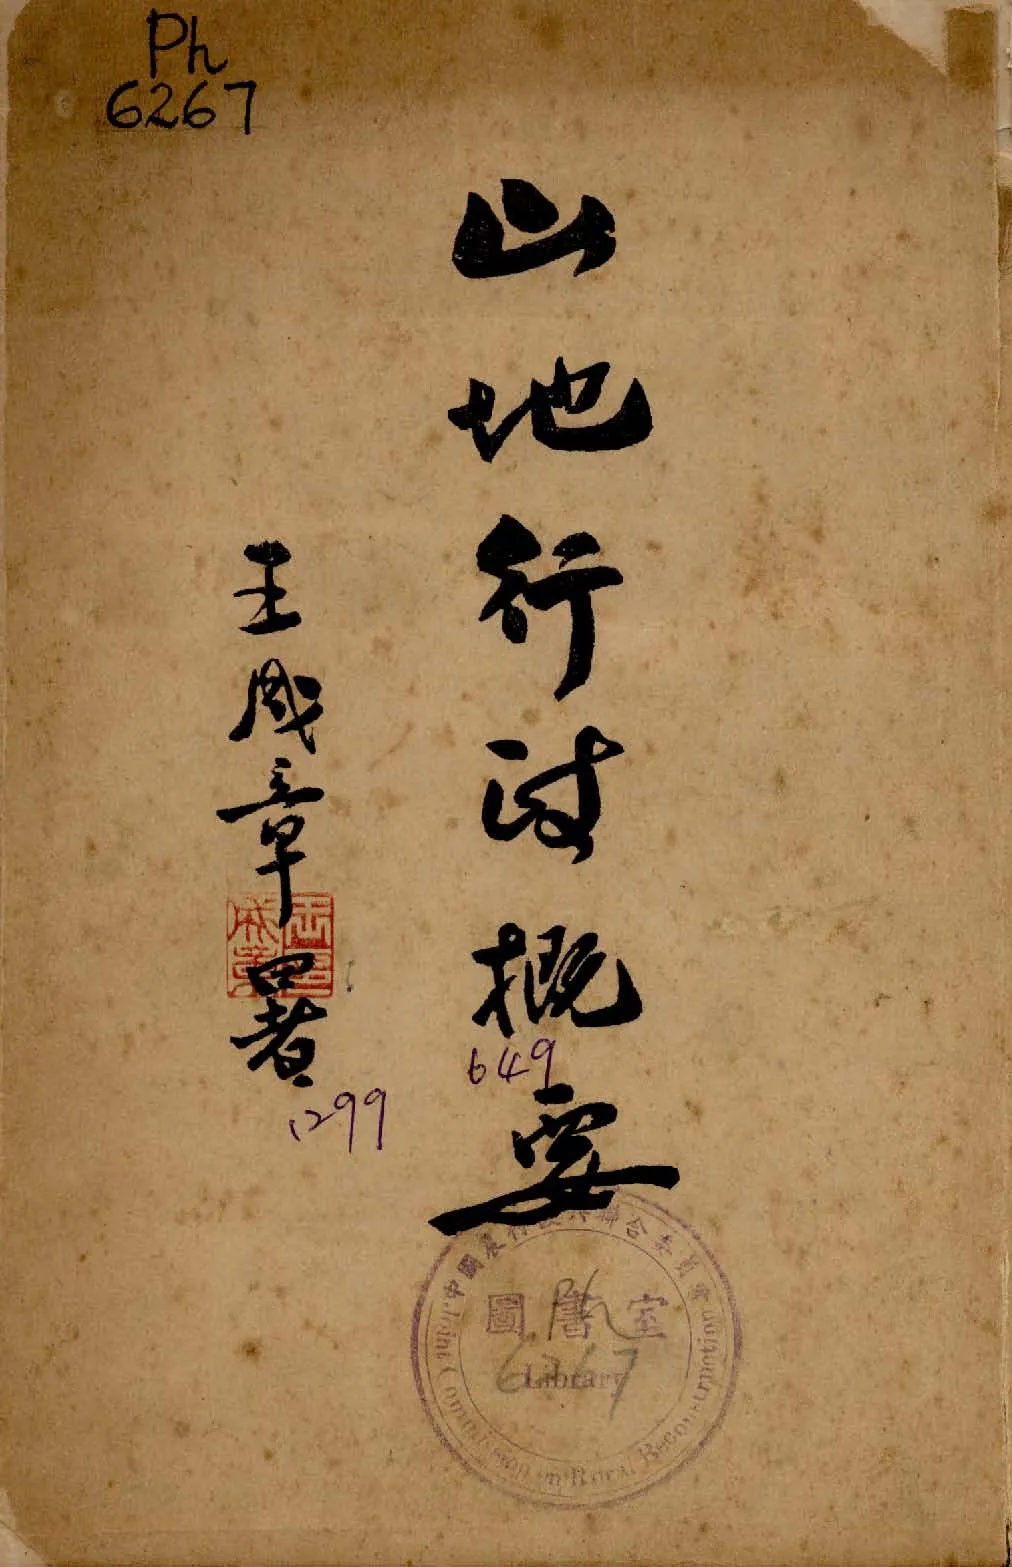 Ph
6267
山地行政概要
王成章署
王成章印
649
1299
中國農村復興聯合委員會
圖書室
Ph
6267
Library
Joint Commission on Rural Reconstruction